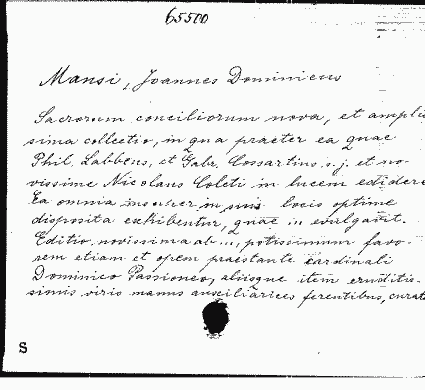 65500
Mansi, Joannes Dominicus
Sacrorum conciliorum nova, et amplis
sima collectio, in qua praeter ea quae
Phil. Labbeus, et Gabr. Cossartius s.j. et no-
vissime Nicolaus Coleti in lucem edidere
Ea omnia insuper in suis locis optime
disposita exhibentur, quae ... evulgavit.
Editio novissima ab ..., potissimum favo-
rem etiam et opem praestante cardinali
Dominico Passioneo, aliisque item eruditis-
simis viris manus auxiliarices ferentibus, curata
S